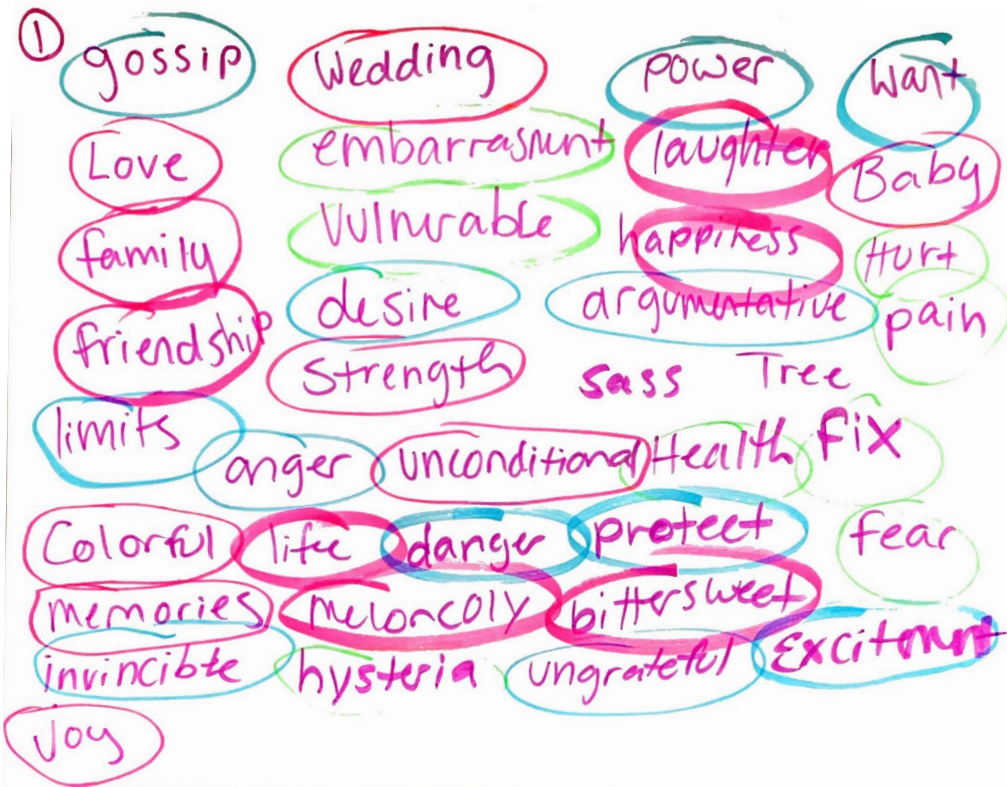 ① gossip Wedding power Want
Love embarrasment laughter Baby
family Vulnerable happiness Hurt
friendship desire argumentative pain
Strength sass Tree
limits anger unconditional Health fix
Colorful life danger protect fear
memories meloncoly bittersweet
invincible hysteria ungrateful Excitment
Joy